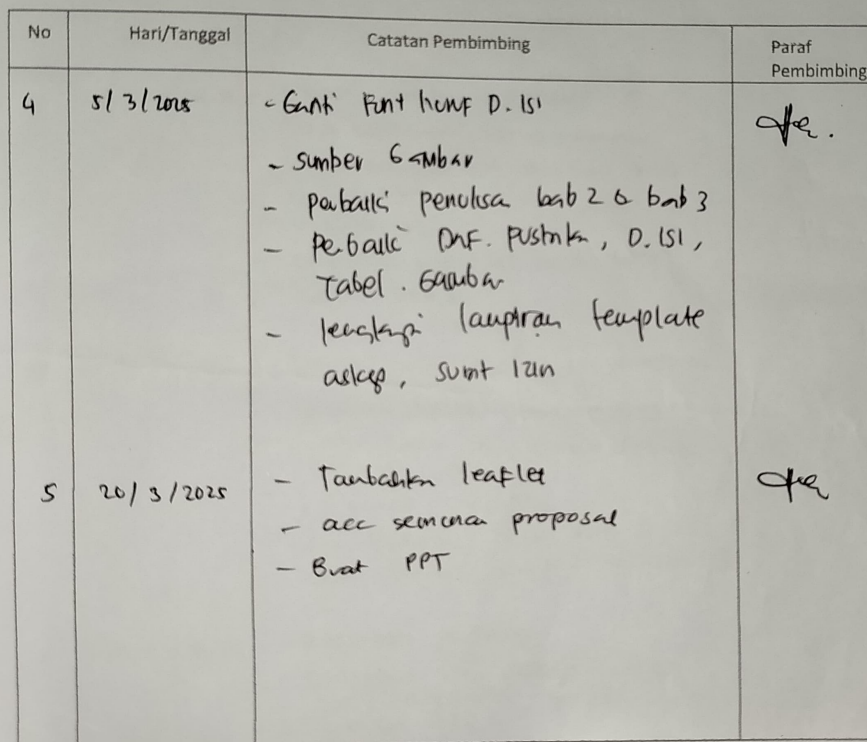 No Hari/Tanggal Catatan Pembimbing Paraf Pembimbing
4 5/3/2025 - Ganti Font huruf D. ISI
- Sumber Gambar
- perbaiki penulisa bab 2 & bab 3
- Perbaiki Daf. Pustaka, D. ISI,
Tabel. Gambar
- lengkapi lampiran template
askep, surat izin
5 20/3/2025 - Tambahkan leaflet
- acc seminar proposal
- Buat PPT